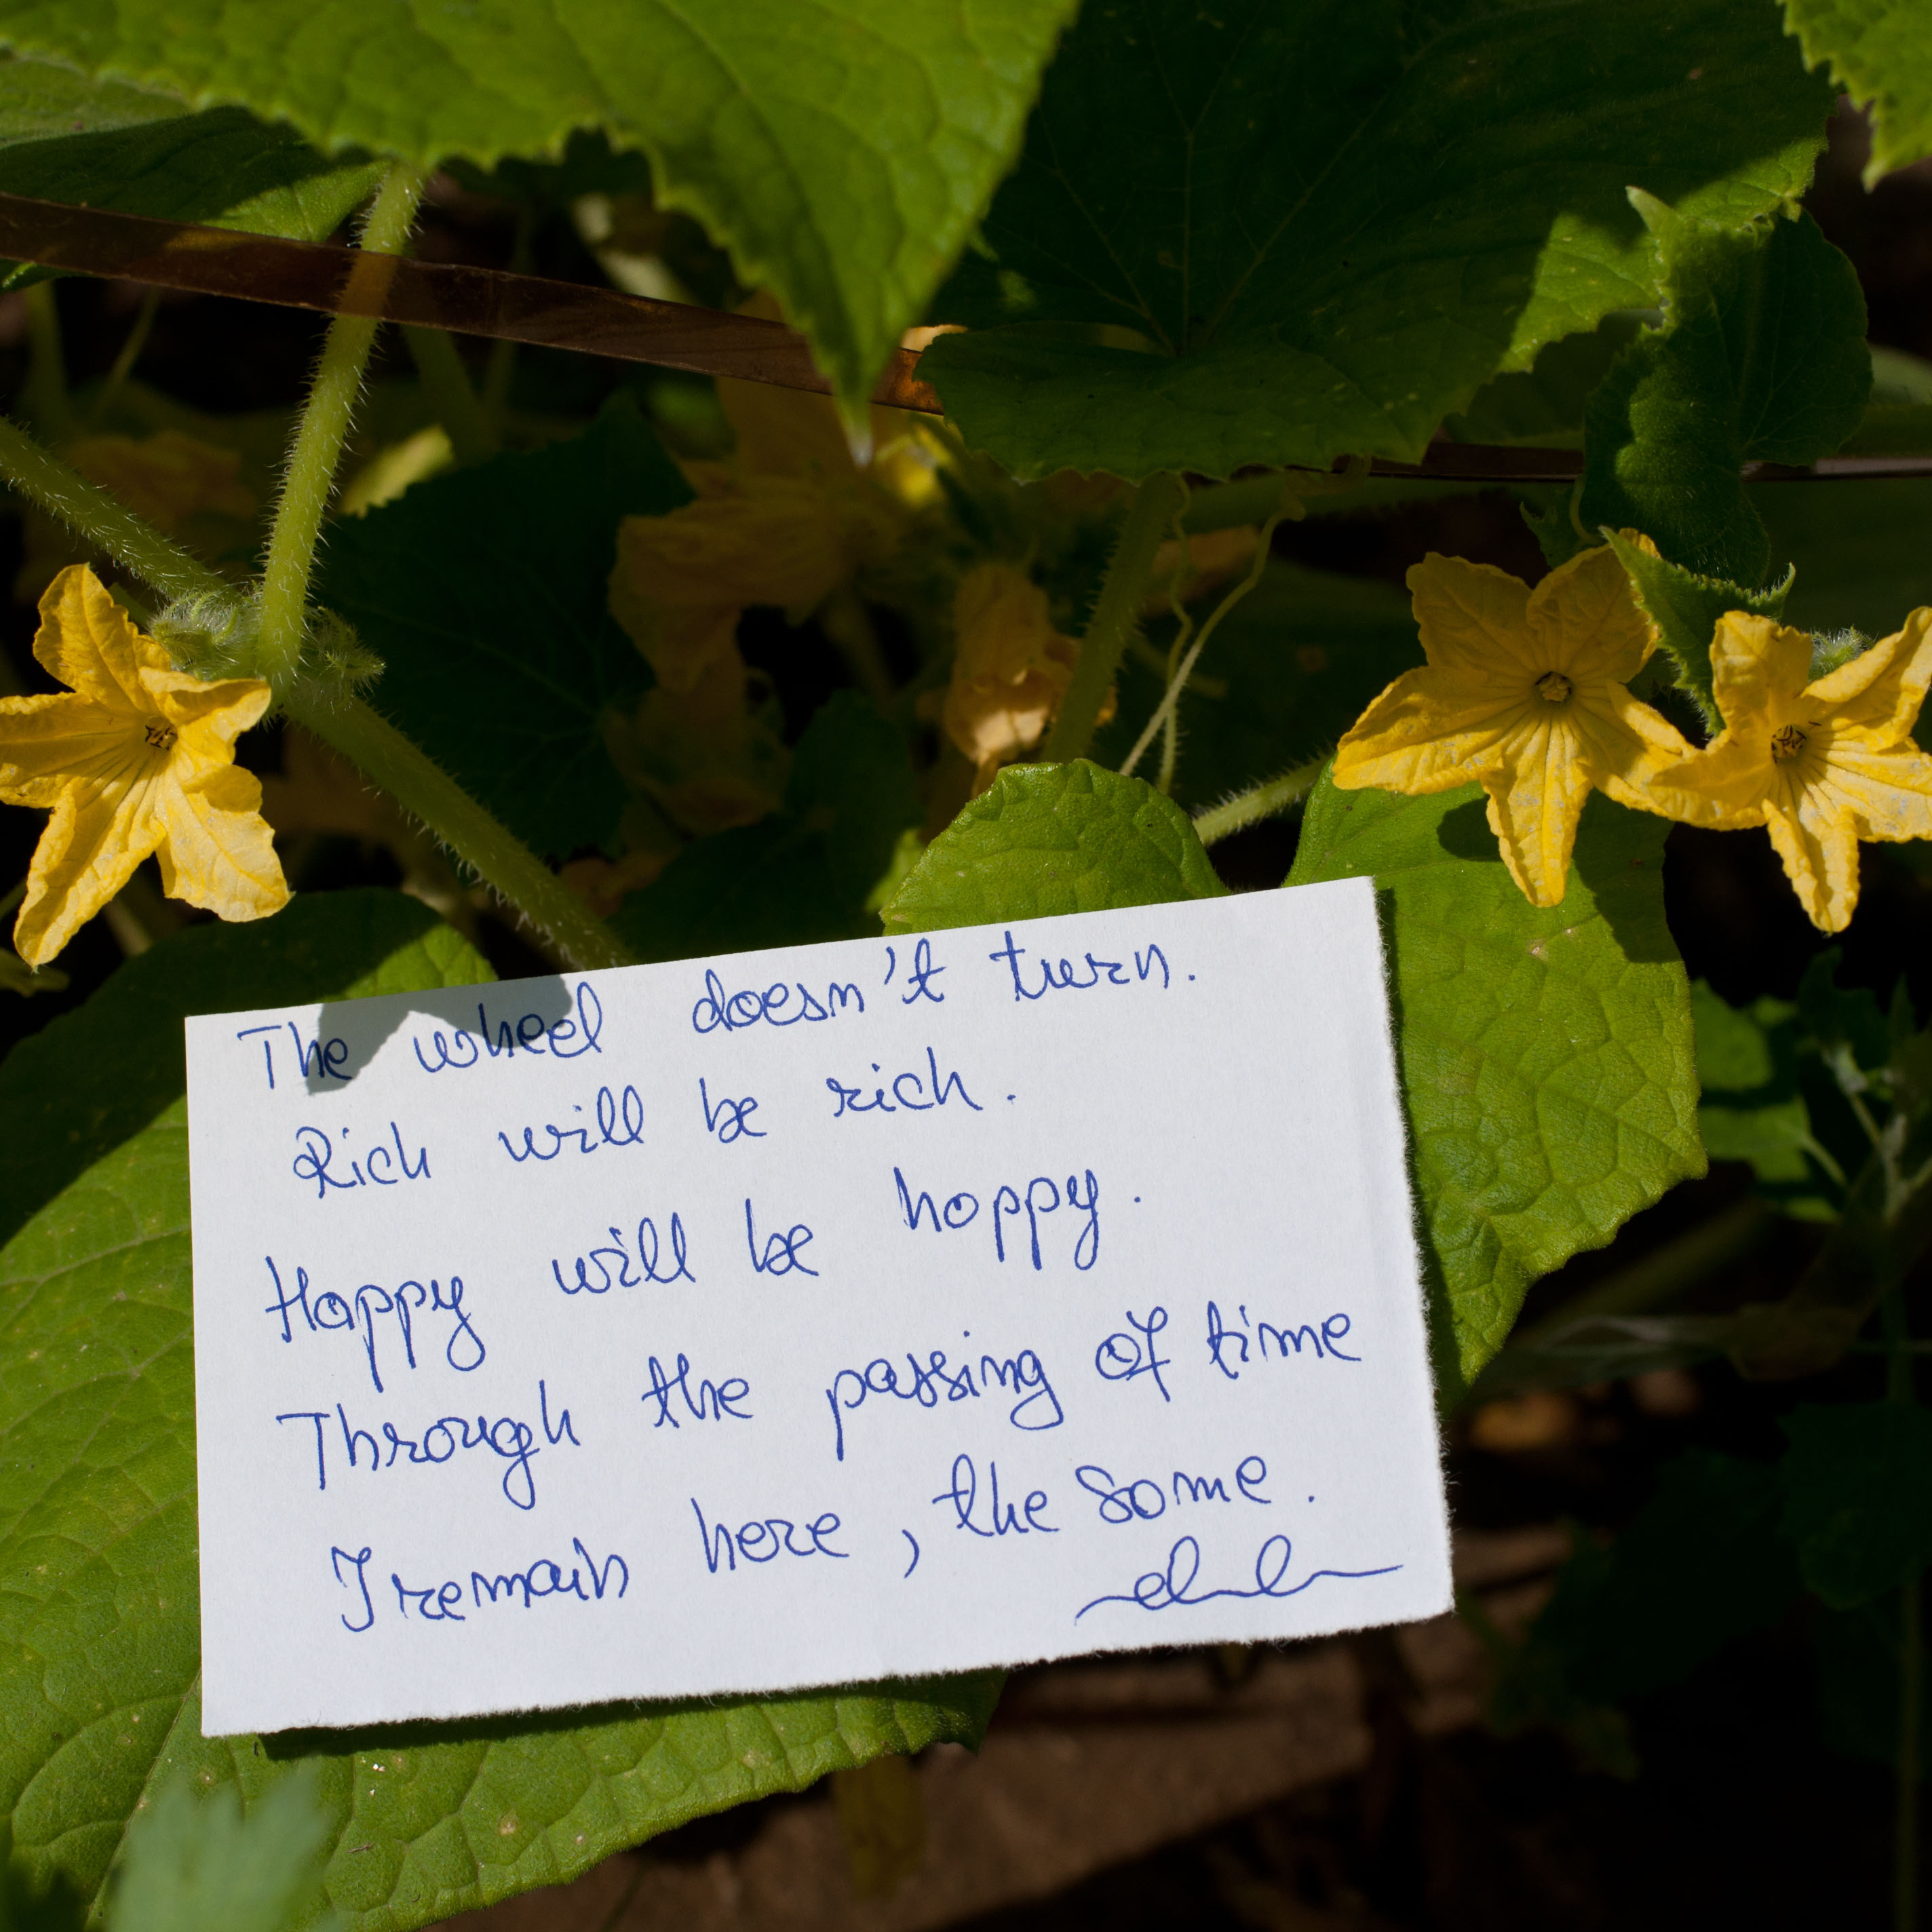 The wheel doesn't turn.
Rich will be rich.
Happy will be happy.
Through the passing of time
I remain here, the same.